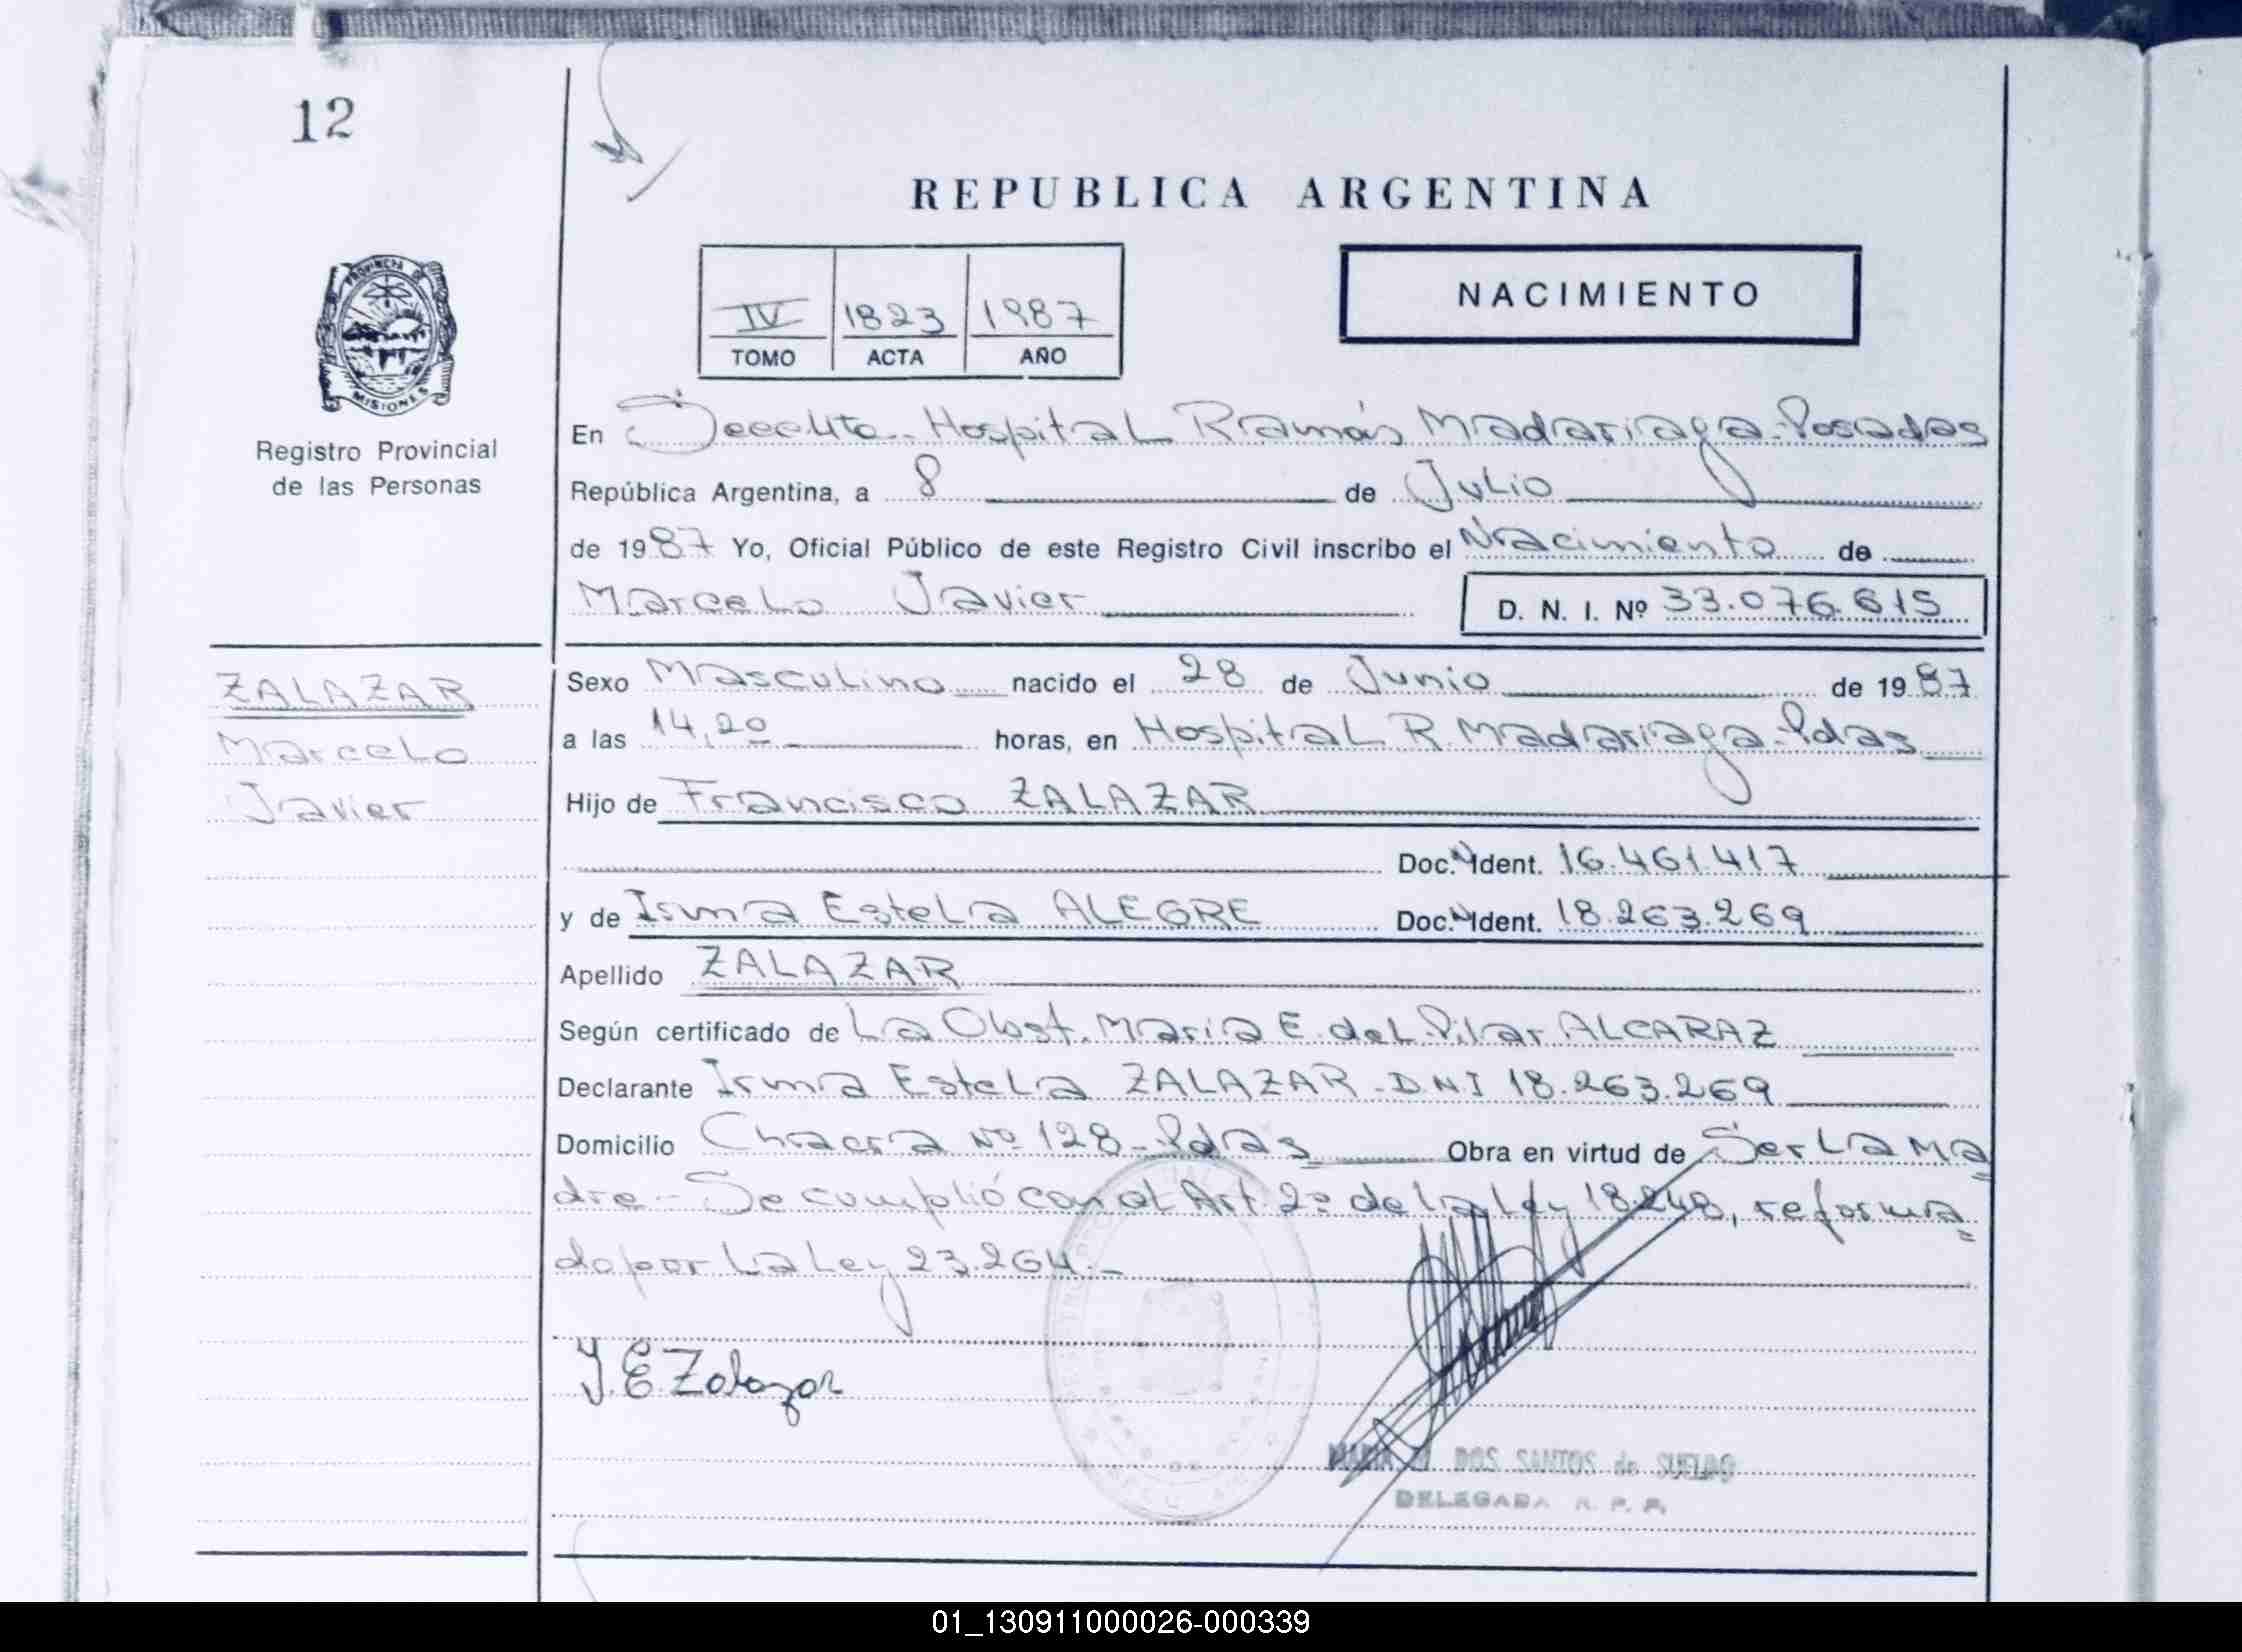 12
REPUBLICA ARGENTINA
PROVINCIA DE
MISIONES
Registro Provincial
de las Personas
IV 1823 1987
TOMO ACTA AÑO
NACIMIENTO
En Hospital Ramón Madariaga-Posadas
República Argentina, a 8 de Julio
de 1987 Yo, Oficial Público de este Registro Civil inscribo el Nacimiento de
Marcelo Javier D. N. I. Nº 33.076.615
ZALAZAR
Marcelo
Javier
Sexo Masculino nacido el 28 de Junio de 1987
a las 14,20 horas, en Hospital R. Madariaga-Pdas
Hijo de Francisco ZALAZAR
Doc. N Ident. 16.461.417
y de Irma Estela ALEGRE Doc. N Ident. 18.263.269
Apellido ZALAZAR
Según certificado de La Obst. María E. del Pilar ALCARAZ
Declarante Irma Estela ZALAZAR - D.N.I 18.263.269
Domicilio Chacra Nº 128 - Pdas Obra en virtud de Ser La Ma
dre - Se cumplió con el Art. 2º de la Ley 18.248, reforma
do por La Ley 23.264.-
I. E Zalazar
MARIA DOS SANTOS de
DELEGADA R. P. P.
01_130911000026-000339